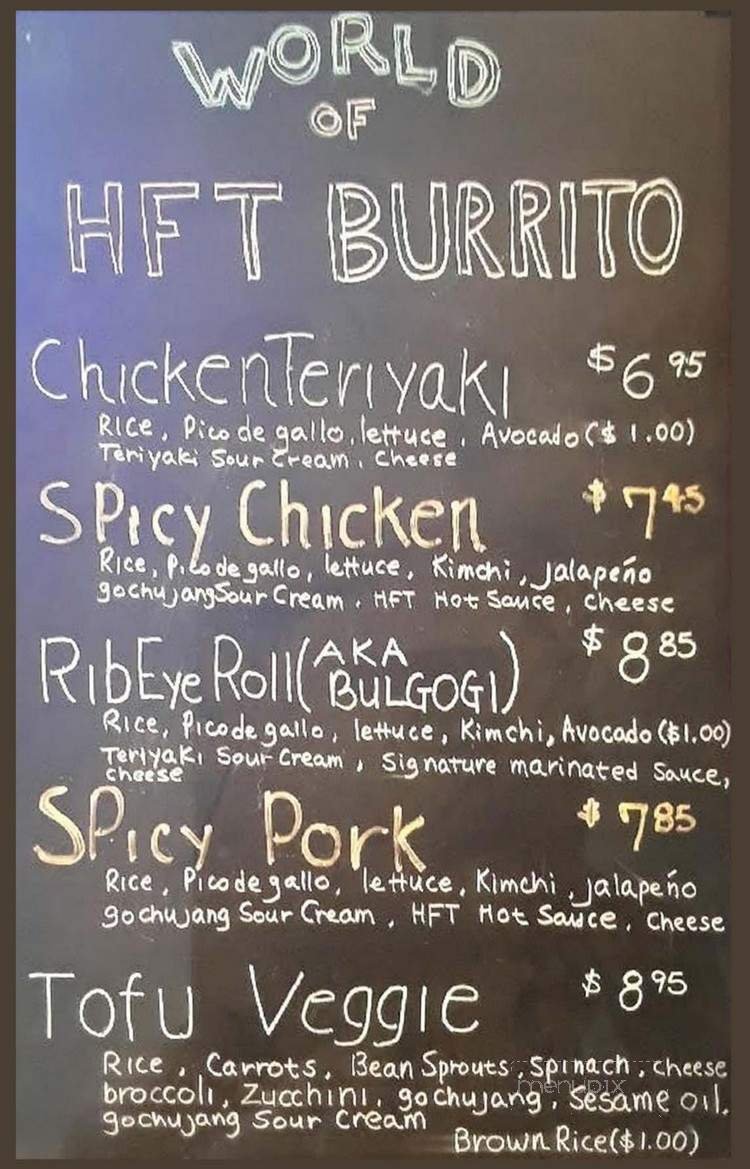 WORLD
OF
HFT BURRITO
Chicken Teriyaki $6.95
Rice, Pico de gallo, lettuce, Avocado ($1.00)
Teriyaki Sour Cream, Cheese
Spicy Chicken $7.45
Rice, Pico de gallo, lettuce, Kimchi, jalapeño
gochujang Sour Cream, HFT Hot Sauce, cheese
RibEye Roll (AKA BULGOGI) $8.85
Rice, Pico de gallo, lettuce, Kimchi, Avocado ($1.00)
Teriyaki Sour Cream, Signature marinated Sauce,
cheese
Spicy Pork $7.85
Rice, Pico de gallo, lettuce, Kimchi, jalapeño
gochujang Sour Cream, HFT Hot Sauce, Cheese
Tofu Veggie $8.95
Rice, Carrots, Bean Sprouts, Spinach, cheese
menupix
broccoli, Zucchini, gochujang, Sesame oil,
gochujang Sour Cream
Brown Rice ($1.00)